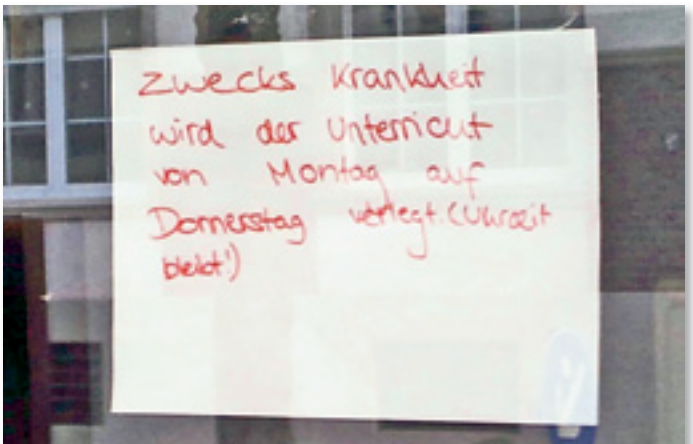 Zwecks Krankheit
wird der Unterricht
von Montag auf
Donnerstag verlegt. (Uhrzeit
bleibt!)